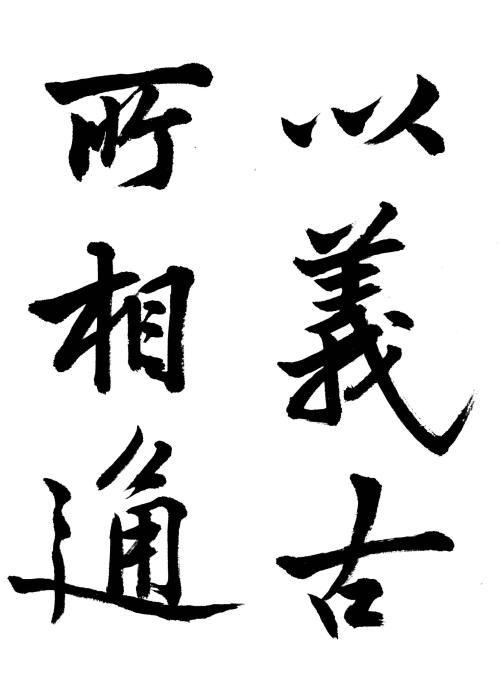 以義古
所相通